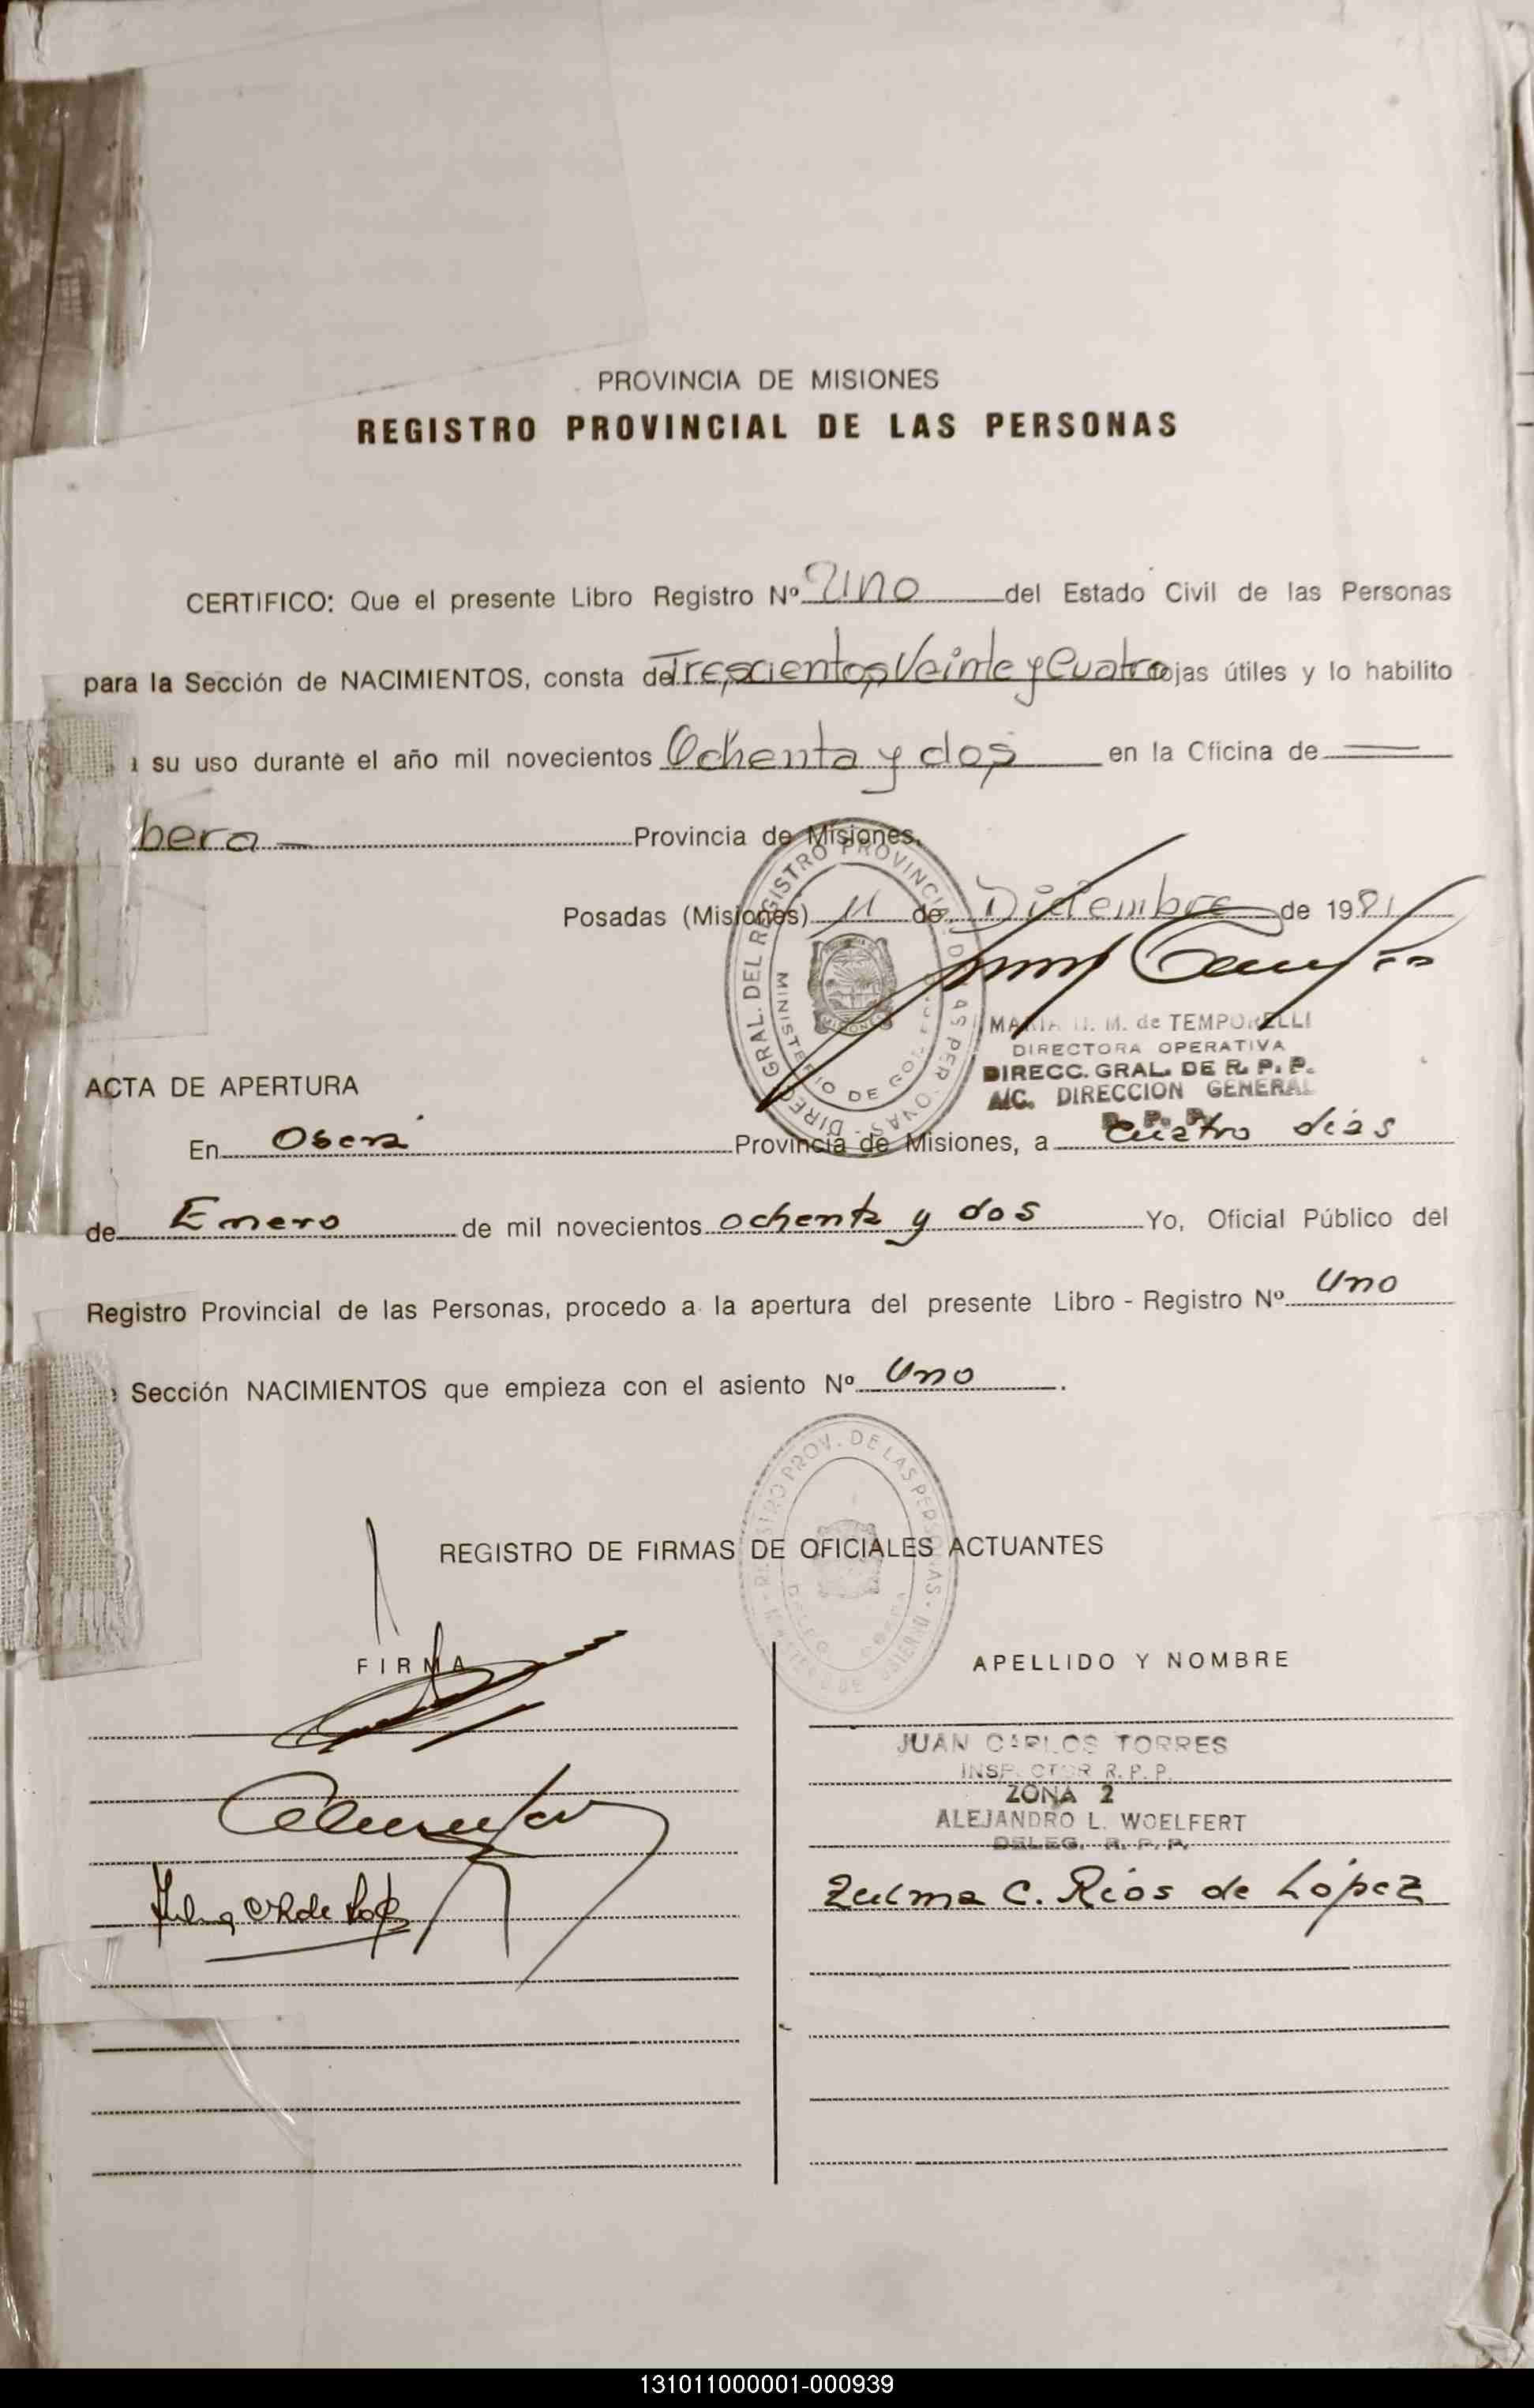 PROVINCIA DE MISIONES
REGISTRO PROVINCIAL DE LAS PERSONAS
CERTIFICO: Que el presente Libro Registro Nº Uno del Estado Civil de las Personas
para la Sección de NACIMIENTOS, consta de Trescientos Veinte y Cuatro ojas útiles y lo habilito
su uso durante el año mil novecientos Ochenta y dos en la Oficina de
bera Provincia de Misiones.
Posadas (Misiones) 11 de Diciembre de 1981
DIREC GRAL. DEL REGISTRO PROVINCIAL DE LAS PERSONAS
MINISTERIO DE GOBIERNO
MISIONES
MARIA M. de TEMPORELLI
DIRECTORA OPERATIVA
DIRECC. GRAL. DE R. P. P.
A/C. DIRECCION GENERAL
R. P. P.
ACTA DE APERTURA
En Oberá Provincia de Misiones, a cuatro días
de Enero de mil novecientos ochenta y dos Yo, Oficial Público del
Registro Provincial de las Personas, procedo a la apertura del presente Libro - Registro Nº Uno
Sección NACIMIENTOS que empieza con el asiento Nº Uno.
REGISTRO PROV. DE LAS PERSONAS
REGISTRO DE FIRMAS DE OFICIALES ACTUANTES
FIRMA APELLIDO Y NOMBRE
JUAN CARLOS TORRES
INSPECTOR R. P. P.
ZONA 2
ALEJANDRO L. WOELFERT
DELEG. R. P. P.
Zulma C. Ríos de López
131011000001-000939